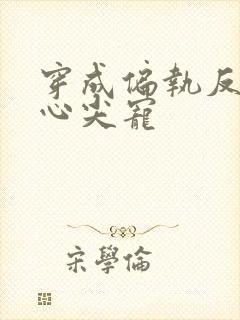 穿成偏執反
心尖寵
宋學倫